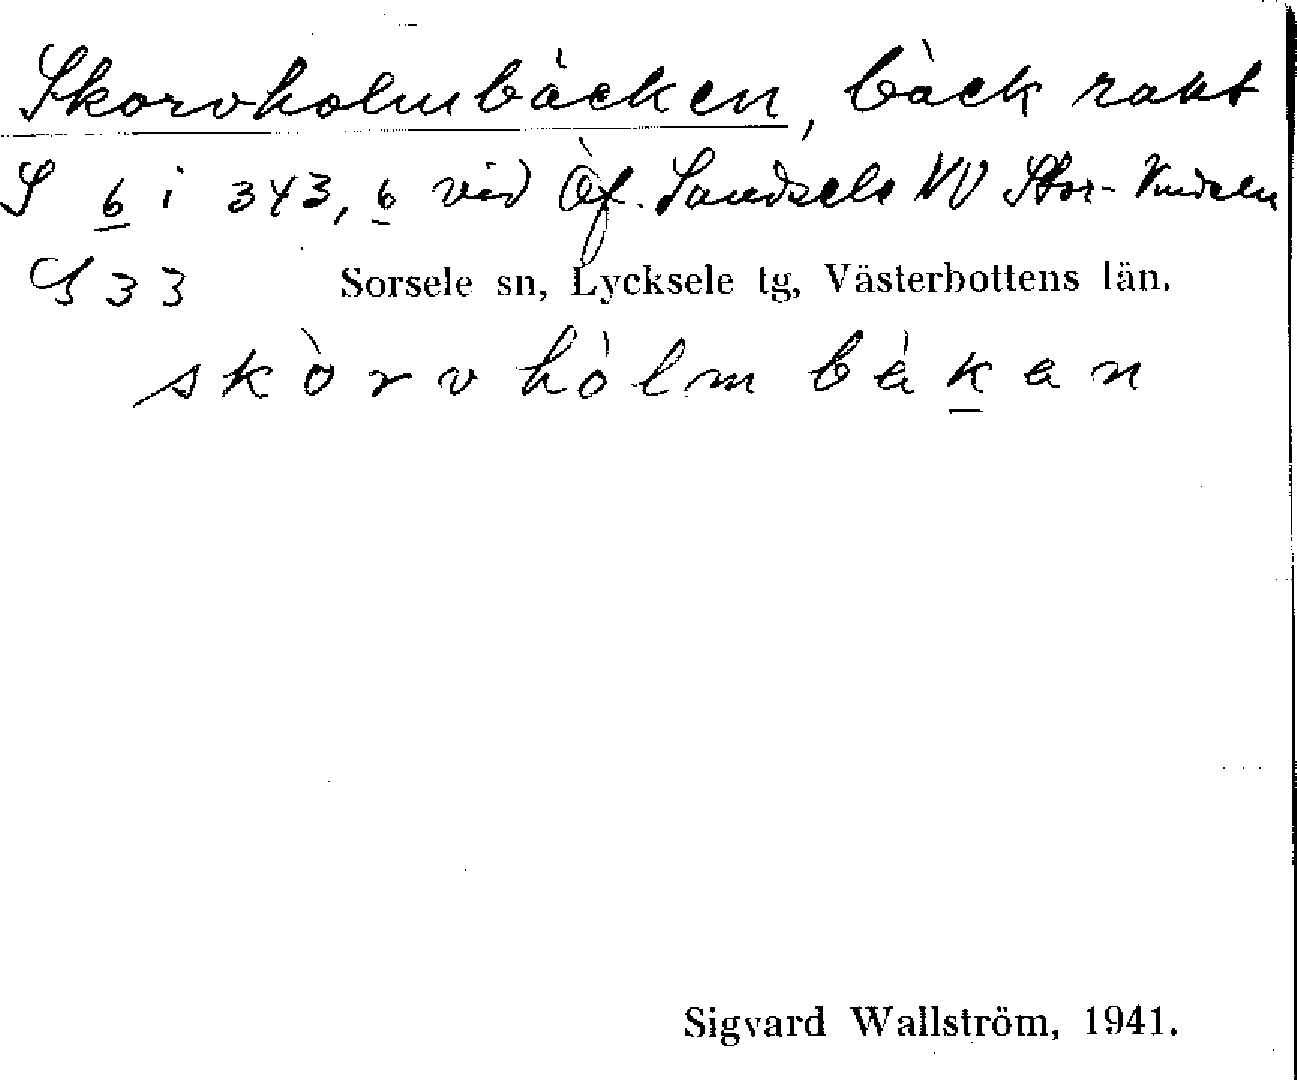 Skorvholmbäcken, bäck rakt
S 6 i 343, 6 vid Öf. Sandsele NV Stor-Vindeln
S 33 Sorsele sn, Lycksele tg, Västerbottens län.
skòrvhòlmbàkan
Sigvard Wallström, 1941.